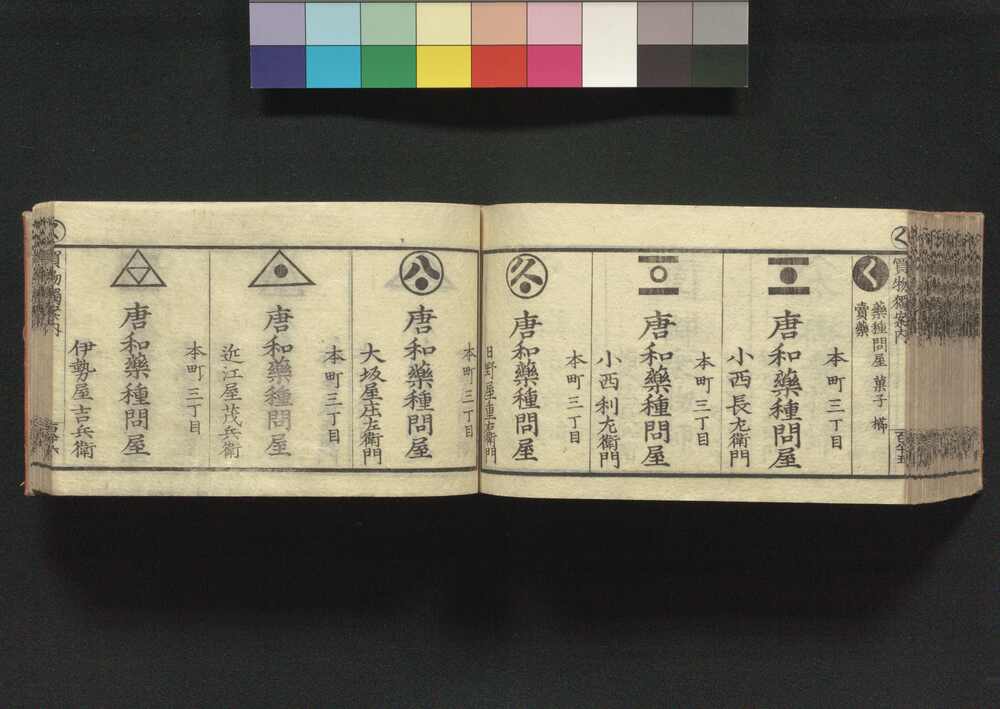 く
買物獨案内
く
藥種問屋 菓子 櫛
賣藥
本町三丁目
唐和藥種問屋
小西長左衛門
本町三丁目
唐和藥種問屋
小西利左衛門
本町三丁目
久
唐和藥種問屋
日野屋重右衛門
本町三丁目
八
唐和藥種問屋
大坂屋庄左衛門
本町三丁目
唐和藥種問屋
近江屋茂兵衛
本町三丁目
唐和藥種問屋
伊勢屋吉兵衛
買物獨案内